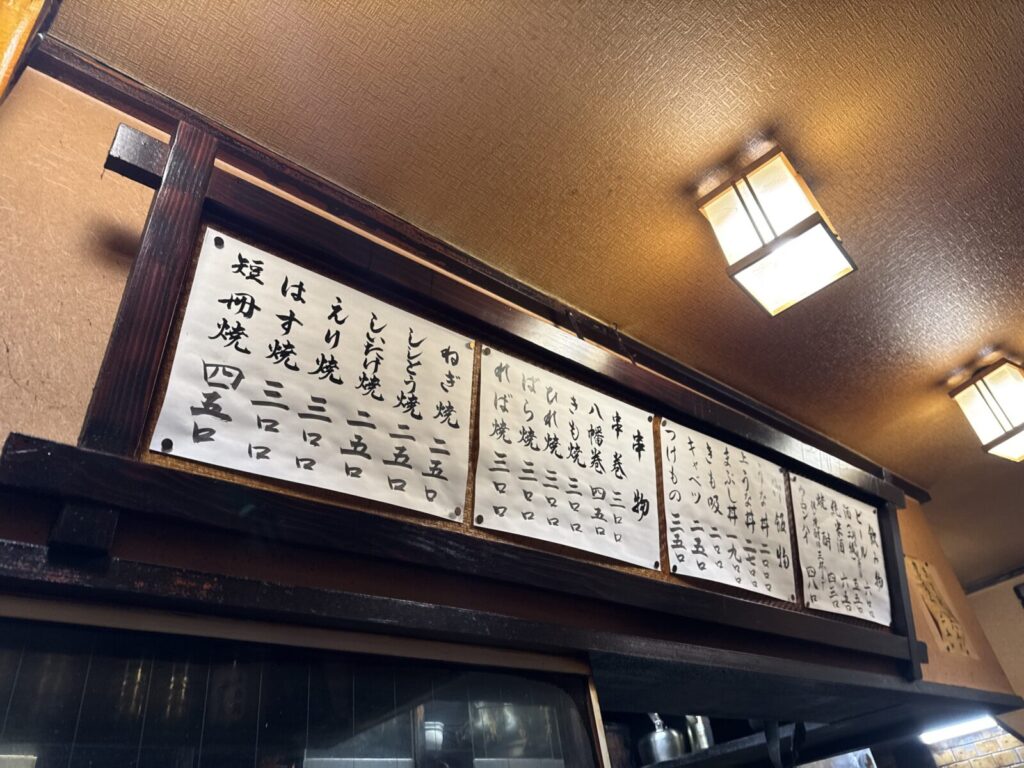 飲み物
ビール 六〇〇
焼酎
飯物
上うな丼
まぶし丼 一九〇〇
きも吸 二〇〇
キャベツ 二五〇
つけもの 三五〇
串物
串巻 三〇〇
八幡巻 四五〇
きも焼 三〇〇
ひれ焼 三〇〇
ばら焼 三〇〇
れば焼 三〇〇
ねぎ焼 二五〇
ししとう焼 二五〇
しいたけ焼 二五〇
えり焼 三〇〇
はす焼 三〇〇
短冊焼 四五〇